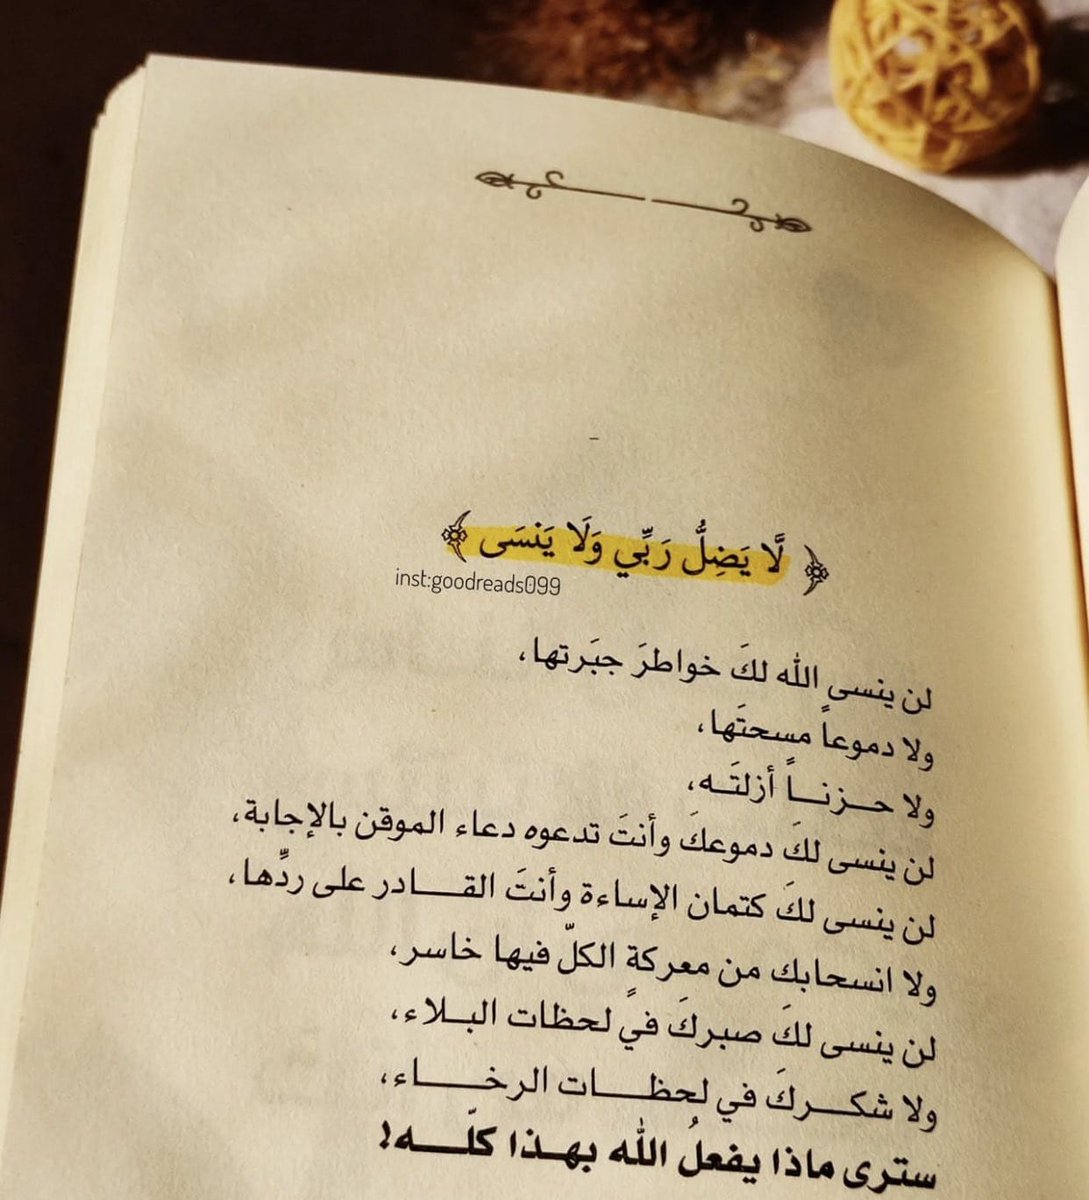 ﴿ لَّا يَضِلُّ رَبِّي وَلَا يَنسَى ﴾
inst:goodreads099
لن ينسى الله لكَ خواطرَ جبَرتها،
ولا دموعاً مسحتَها،
ولا حـزنـاً أزلتَـه،
لن ينسى لكَ دموعكَ وأنتَ تدعوه دعاء الموقن بالإجابة،
لن ينسى لكَ كتمان الإساءة وأنتَ القـادر على ردِّها،
ولا انسحابك من معركةٍ الكلّ فيها خاسر،
لن ينسى لكَ صبركَ في لحظات البـلاء،
ولا شكـركَ في لحظـات الرخـاء،
سترى ماذا يفعلُ الله بهـذا كلّـه!